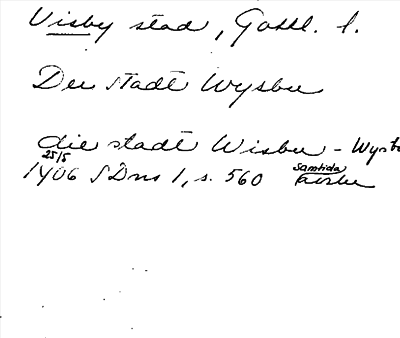 Visby stad, Gottl. l.
Der stadt Wysbu
die stadt Wisbu - Wysb
25/5
1406 SDns 1, s. 560 samtida